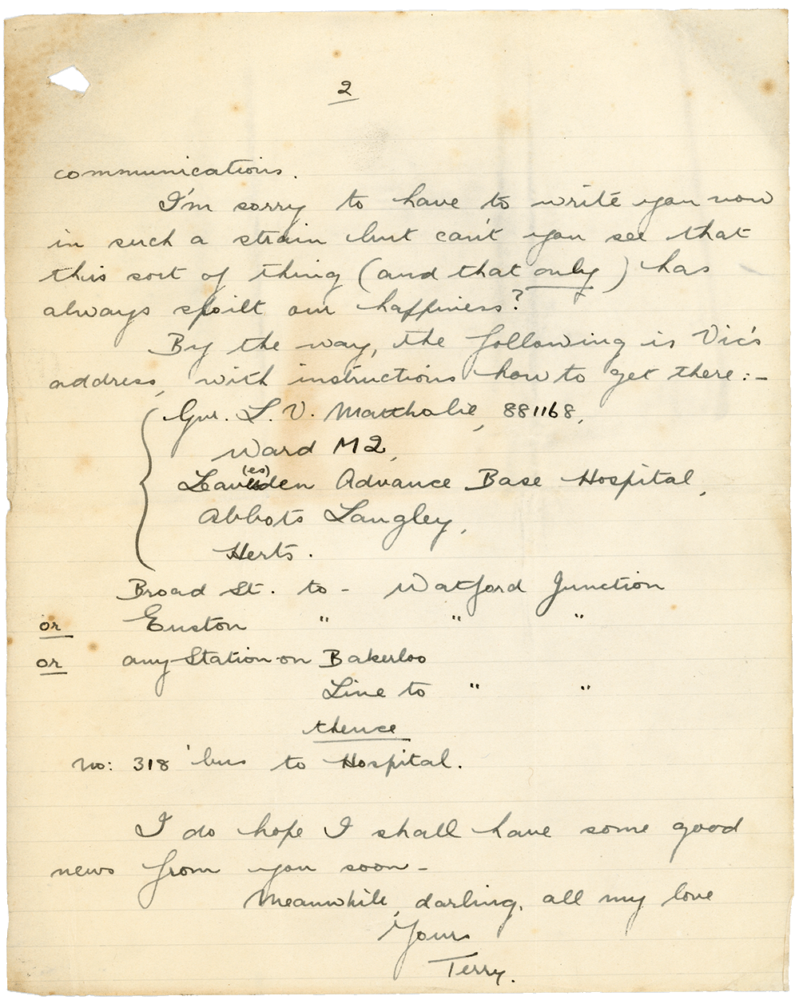 2
communications.
I'm sorry to have to write you now
in such a strain but can't you see that
this sort of thing (and that only) has
always spoilt our happiness?
By the way, the following is Vic's
address, with instructions how to get there:-
Gnr. L. V. Matthalie, 881168,
Ward M2,
(es)
Leavesden Advance Base Hospital,
Abbots Langley,
Herts.
Broad St. to - Watford Junction
or Euston " " "
or any Station on Bakerloo
Line to " "
thence
No: 318 'bus to Hospital.
I do hope I shall have some good
news from you soon -
Meanwhile, darling, all my love
Yours
Terry.